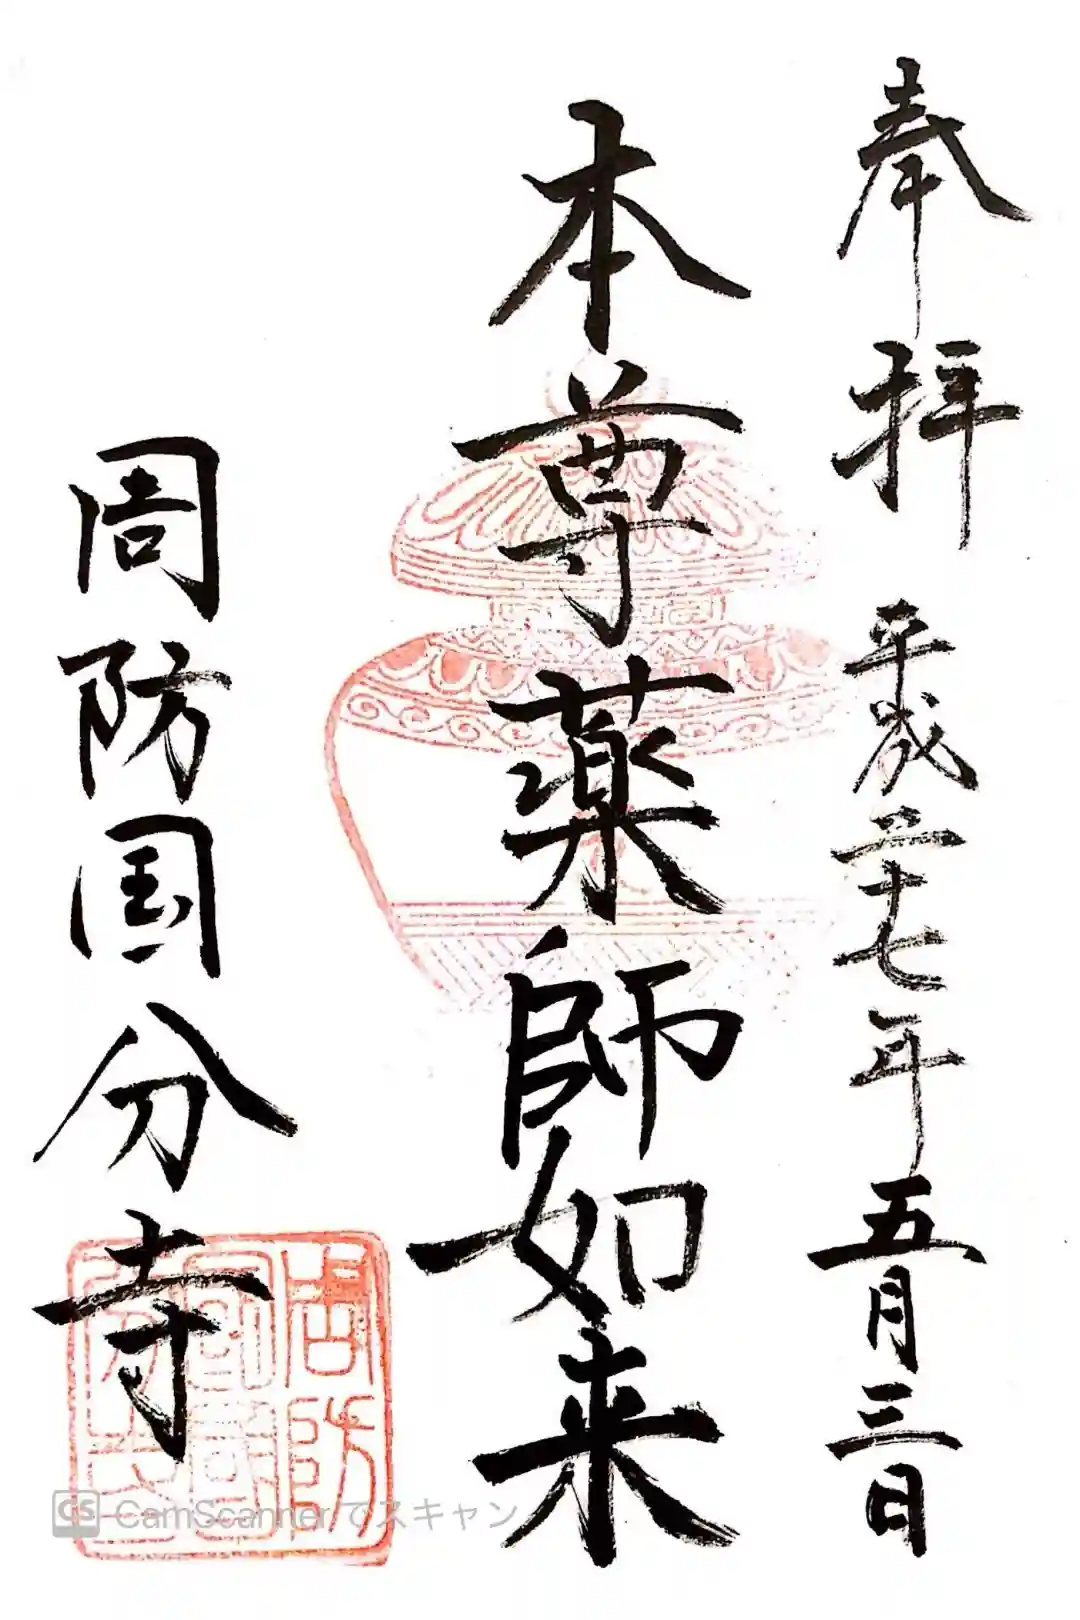 奉拝 平成二十七年五月三日
本尊薬師如来
周防国分寺
周防
CS CamScannerでスキャン